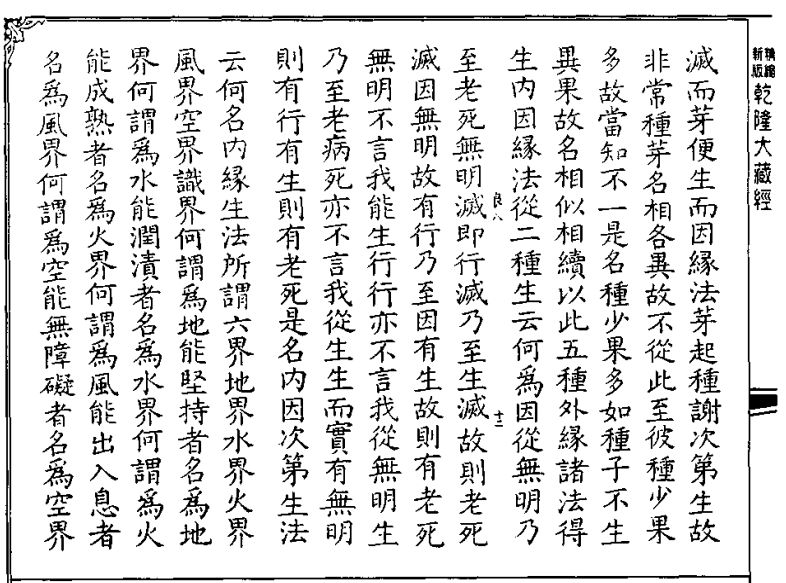 新版
精縮
乾隆大藏經
滅而芽便生而因緣法芽起種謝次第生故
非常種芽名相各異故不從此至彼種少果
多故當知不一是名種少果多如種子不生
異果故名相似相續以此五種外緣諸法得
生內因緣法從二種生云何爲因從無明乃
良八
十二
至老死無明滅即行滅乃至生滅故則老死
滅因無明故有行乃至因有生故則有老死
無明不言我能生行行亦不言我從無明生
乃至老病死亦不言我從生生而實有無明
則有行有生則有老死是名內因次第生法
云何名內緣生法所謂六界地界水界火界
風界空界識界何謂爲地能堅持者名爲地
界何謂爲水能潤漬者名爲水界何謂爲火
能成熟者名爲火界何謂爲風能出入息者
名爲風界何謂爲空能無障礙者名爲空界